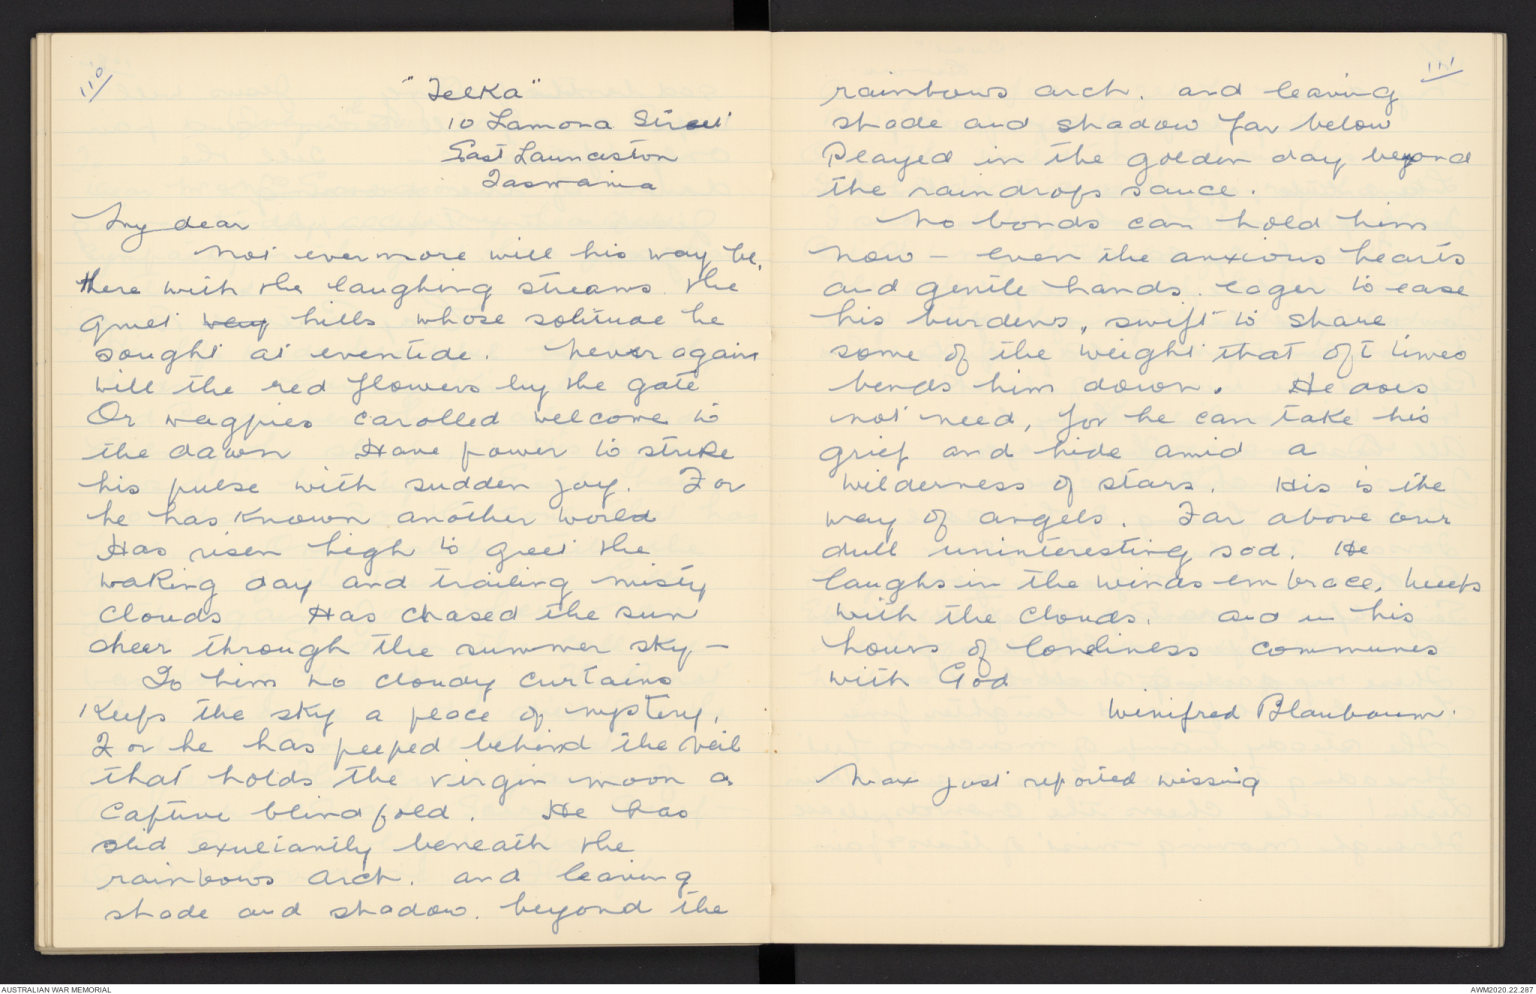 110
"Telka"
10 Lamona Street
East Launceston
Tasmania
My dear
Not ever more will his way be,
there with the laughing streams the
quiet very hills whose solitude he
sought at eventide. Never again
will the red flowers by the gate
Or magpies carolled welcome to
the dawn Have power to strike
his pulse with sudden joy. For
he has known another world
Has risen high to greet the
waking day and trailing misty
clouds Has chased the sun
cheer through the summer sky –
To him no cloudy curtains
Keeps the sky a place of mystery,
For he has peeped behind the veil
that holds the virgin moon a
captive blindfold. He has
slid exultantly beneath the
rainbows arch. and leaving
shade and shadow. beyond the
111
rainbows arch. and leaving
shade and shadow far below
Played in the golden day beyond
the raindrops sauce.
No bonds can hold him
now – even the anxious hearts
and gentle hands. eager to ease
his burdens, swift to share
some of the weight that oft times
bends him down. He does
not need, for he can take his
grief and hide amid a
wilderness of stars. His is the
way of angels. Far above our
dull uninteresting sod. He
laughs in the winds embrace, weeps
with the clouds. and in his
hours of loneliness communes
with God
Winifred Blaubaum.
Max just reported missing
AUSTRALIAN WAR MEMORIAL
AWM2020.22.287